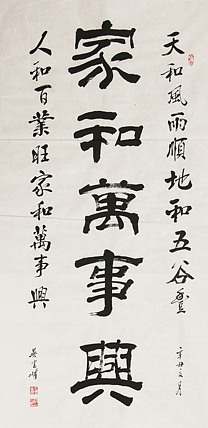 天和風雨順地和五谷豐
辛丑月
家和萬事興
人和百業旺家和萬事興